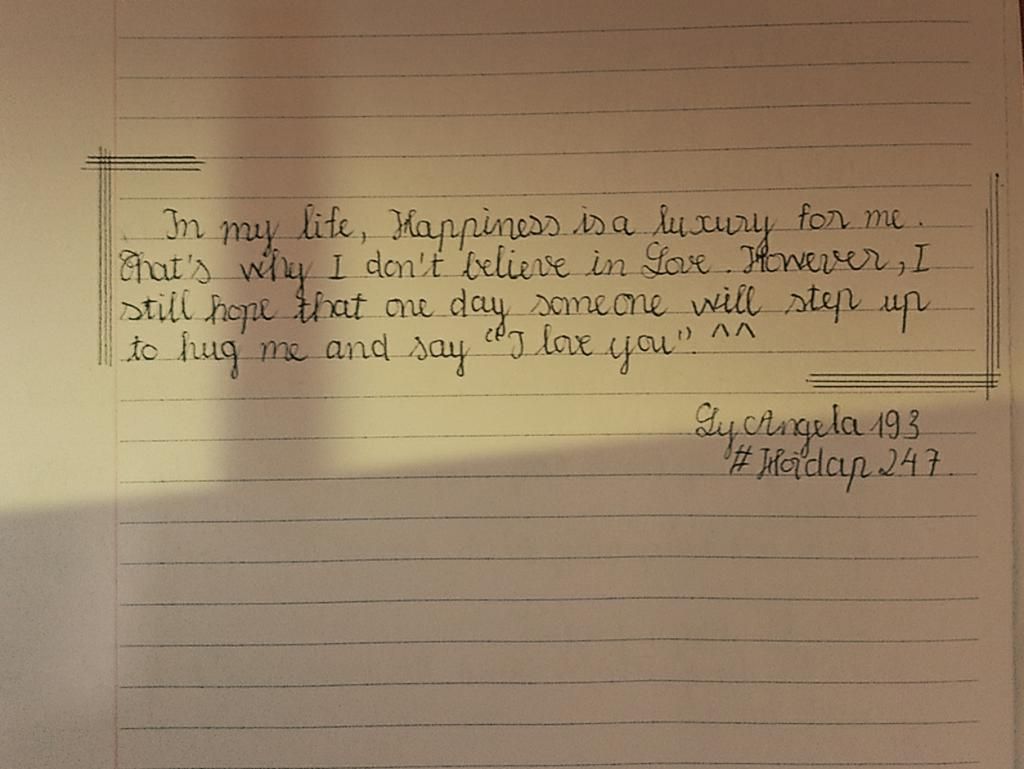 In my life, Happiness is a luxury for me.
That's why I don't believe in Love. However, I
still hope that one day someone will step up
to hug me and say "I love you". ^^
LyAngela 193
#Hoidap 247.